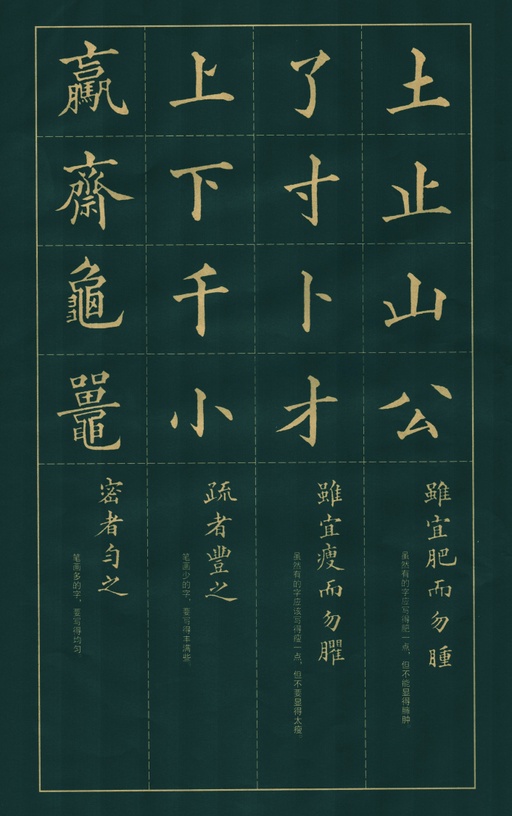 土
止
山
公
雖宜肥而勿腫
虽然有的字应写得肥一点，但不能显得臃肿
了
寸
卜
才
雖宜瘦而勿臞
虽然有的字应该写得瘦一点，但不要显得太瘦
上
下
千
小
疏者豐之
笔画少的字，要写得丰满些
羸
齋
龜
鼉
密者匀之
笔画多的字，要写得均匀